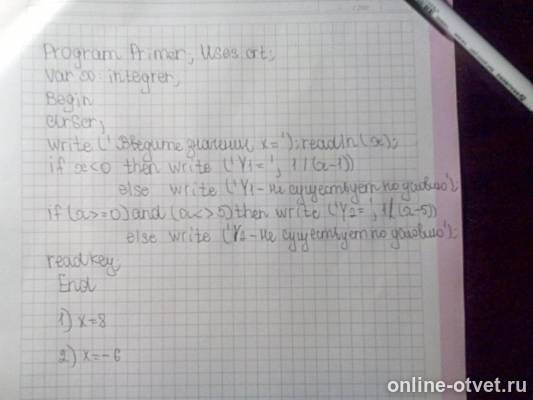 Program Primer, Uses crt;
Var x: integrer,
Begin
clrscr,
write ('Введите значении, x='); readln (x);
if x<0 then write ('Y1=', 1/(x-1))
else write ('Y1-не существует по условию').
if (x>=0) and (x<>5) then write ('Y2=', 1/(x-5))
else write ('Y2-не существует по условию');
readkey
End
1) x=8
2) x=-6
online-otvet.ru